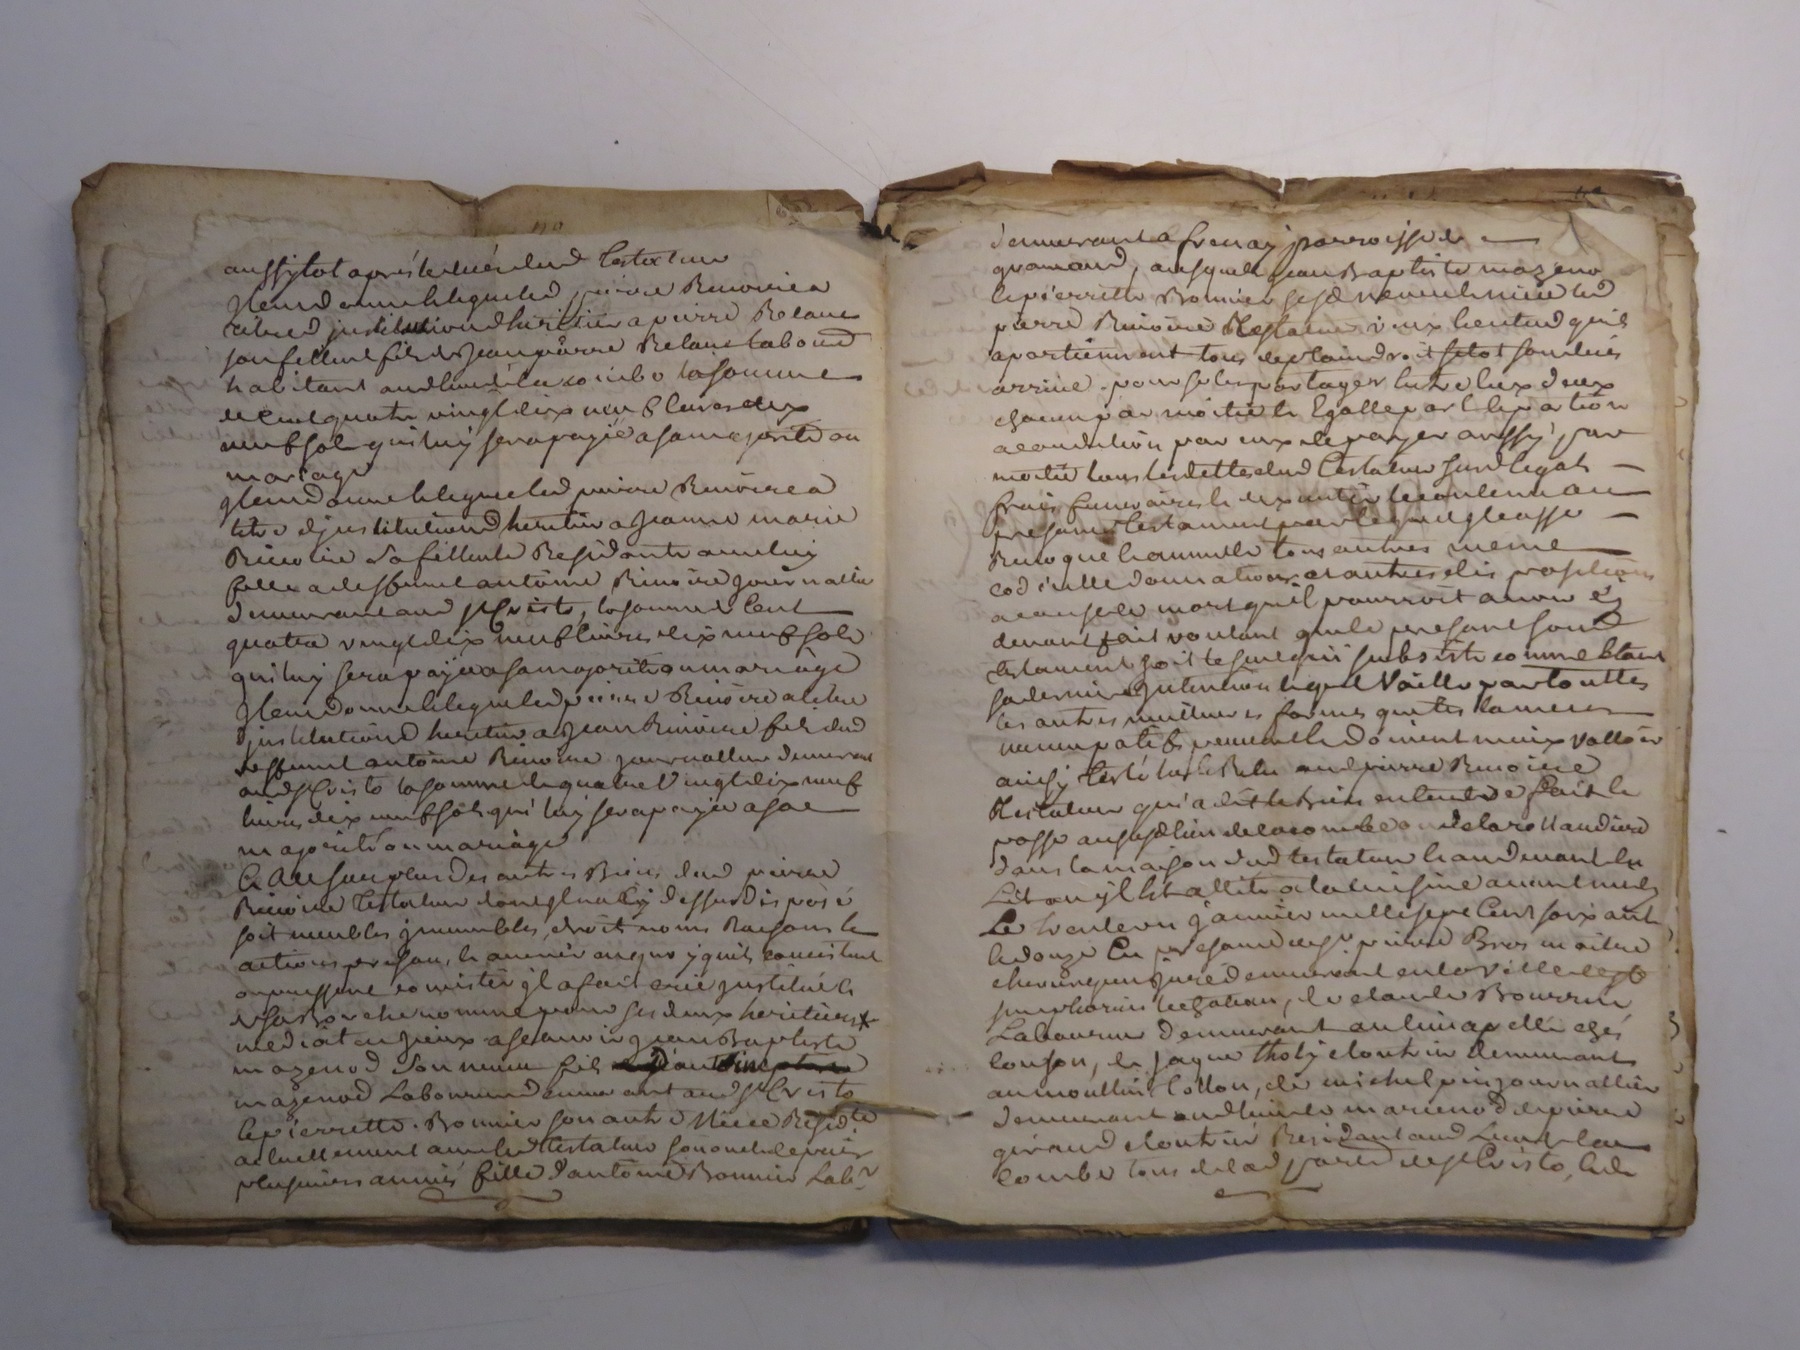 aussytot apres le decés dud testateur
Item donne & legue led pierre Rivoire a
titre d'institution d'heritier a pierre Relave
son fillieul fils de Jean pierre Relave labour
habitant aud lieu de la combe la somme
de Cent quatre vingt dix neuf livres dix
neuf sols qui luy sera payé a sa majorité ou
mariage
Item donne & legue led pierre Rivoire a
titre d'institution d'heritier a Jeanne marie
Rivoire sa fillieule Residante avec luy
fille a deffunt antoine Rivoire journallier
demeurant aud st Cristo, la somme de Cent
quatre vingt dix neuf livres dix neuf sols
qui luy sera payée a sa majorité ou mariage
Item donne & legue led pierre Rivoire a titre
d'institution d heritier a Jean Rivoire fils dud
deffunt antoine Rivoire journallier demeurant
aud st Cristo la somme de quatre Vingt dix neuf
livres dix neuf sols qui luy sera payée a sa
majorité ou mariage
Et Au surplus des autres Biens dud pierre
Rivoire testateur dont il n'a cy dessus disposé
soit meubles immeubles, droits noms Raisons &
actions presens, & avenir en quoy qu'ils consistent
ou puissent consister il a fait créé institué &
de sa Bouche nommé pour ses deux heritiers *
mediat en Iceux a scavoir Jean Baptiste
mazenod son neveu fils
mazenod Laboureur demeurant aud st Cristo
& pierrette Bonnier son autre Niece Residte
actuellement avec led testateur son oncle depuis
plusieurs années fille d'antoine Bonnier Labr
demeurant a frenay parroisse de
gramond, ausquels Jean Baptiste mazenod
& pierrette Bonnier ses neveu & niece led
pierre Rivoire testateur veux & entend qu'ils
apartiennent tous de plain droit sitot son decés
arrivé pour se les partager entre eux deux
chacun par moitié & Egalle portion
a condition par eux de payer aussy par
moitié tous les dettes dud testateur susd legats
frais funeraires & d'executter le contenu au
present testament par lequel il casse
Revoque & annulle tous autres meme
codicille donnations et autres dispositions
a cause de mort qu'il pourroit avoir cy
devant fait voulant que le present sond
testament soit le seul qui subsiste comme etant
sa derniere Intention & quil Vaille par touttes
les autres meilleures formes que testament
nuncupatif peuvent & doivent mieux Valloir
ainsy testé led pierre Rivoire
testateur qui a dit le bien entendre fait &
passé ausd lieu de la combe
dans la maison dud testateur & au devant du
Lit ou il Est allitté a la cuisine avant midy
Le trente un Janvier mille sept Cent soixante
& douze En presence de sr pierre Bros maitre
chirurgien juré demeurant en la ville de st
, de claude Bourrin
Laboureur demeurant au lieu apellé chés
, de Jaque tholy cloutrier demeurant
au moullin Collon, de michel pin journallier
demeurant aud lieu de mazenod de pierre
giraud cloutrier Residant aud Lieu de la
Combe tous de lad parr de st Cristo, & de